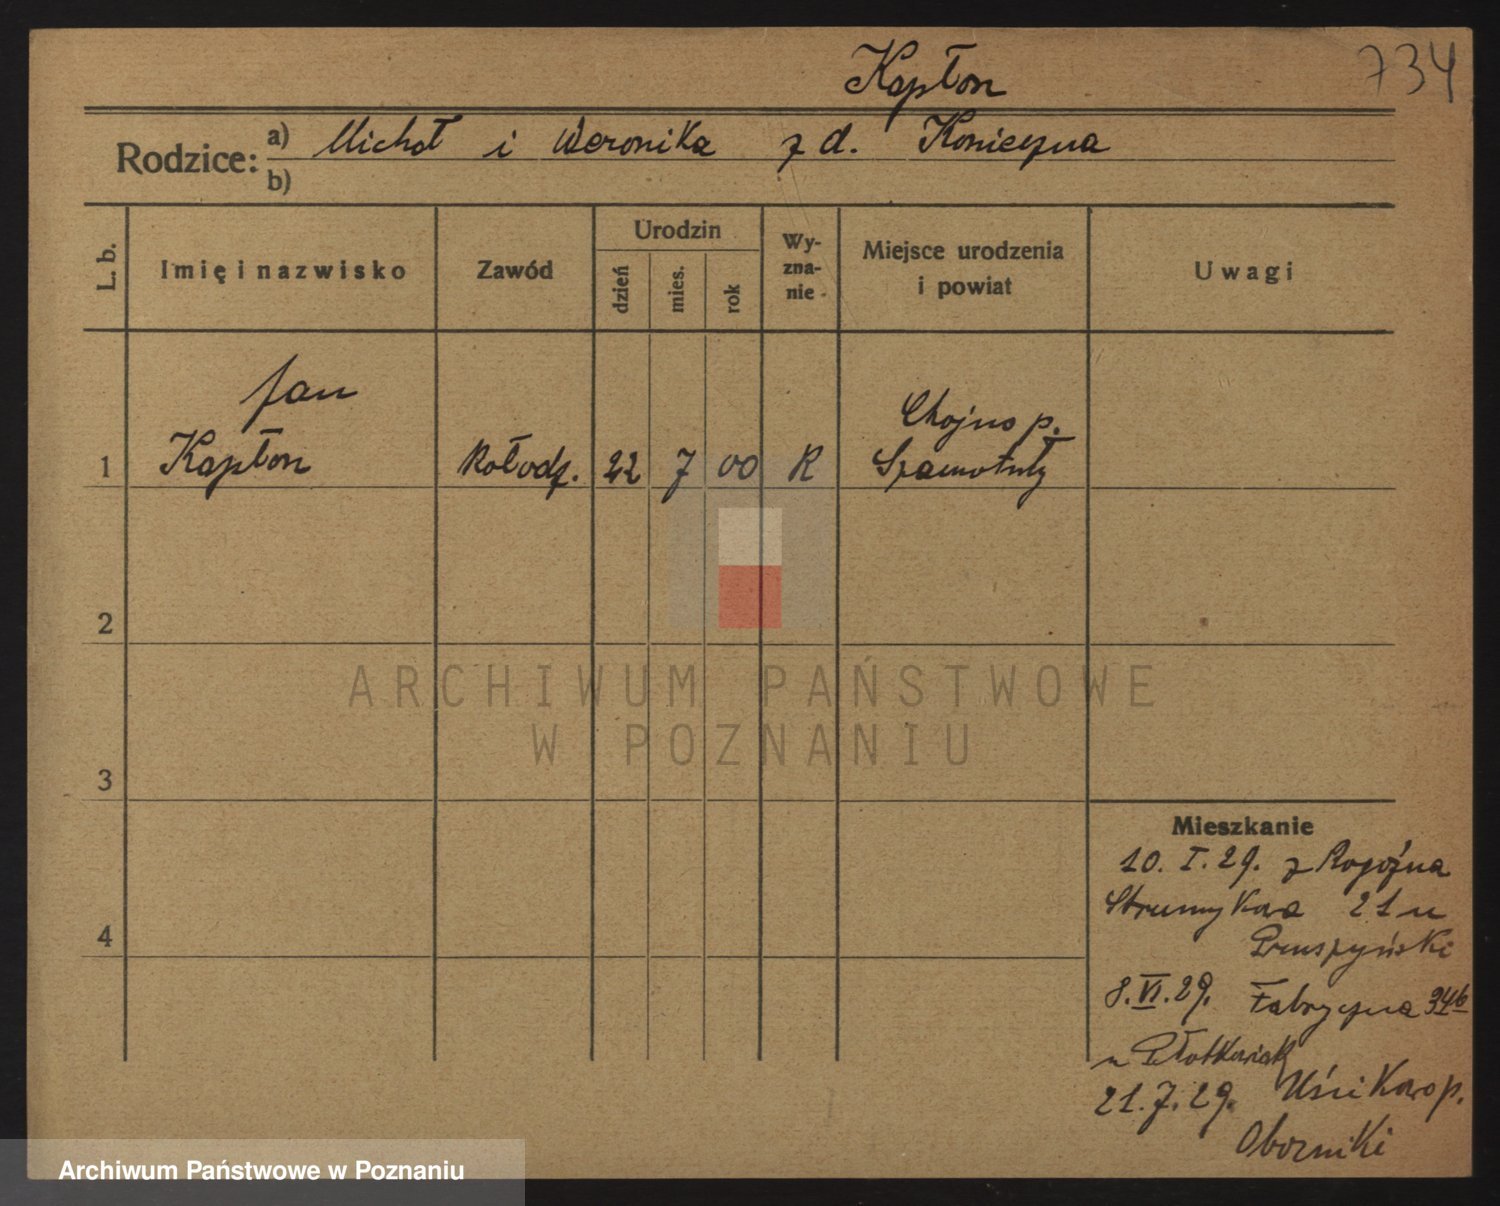 Kapłon
734
Rodzice: a) Michał i Weronika z d. Konieczna
b)
L. b.
Imię i nazwisko
Zawód
Urodzin
dzień
mies.
rok
Wy-
zna-
nie
Miejsce urodzenia
i powiat
Uwagi
Jan
Chojno p.
1 Kapłon kołodz. 22 7 00 R Szamotuły
2
3
4
ARCHIWUM PAŃSTWOWE
W POZNANIU
Mieszkanie
10. I. 29. z Rogoźna
Strumykowa 21 u
Pruszyński
8. VI. 29. Fabryczna 34b
u Płotkowiak
21. 7. 29. Uścikowo p.
Oborniki
Archiwum Państwowe w Poznaniu